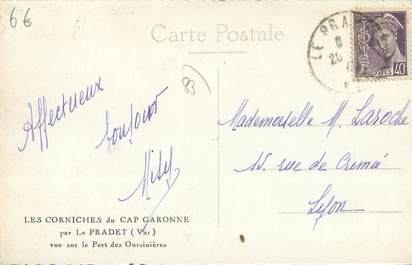 6€
Carte Postale
LE PRA
20
POSTES 40
83
Affectueux
bonjour
Mademoiselle M. Laroche
15 rue de Crimée
Lyon
LES CORNICHES du CAP GARONNE
par Le PRADET (Var)
vue sur le Port des Oursinières